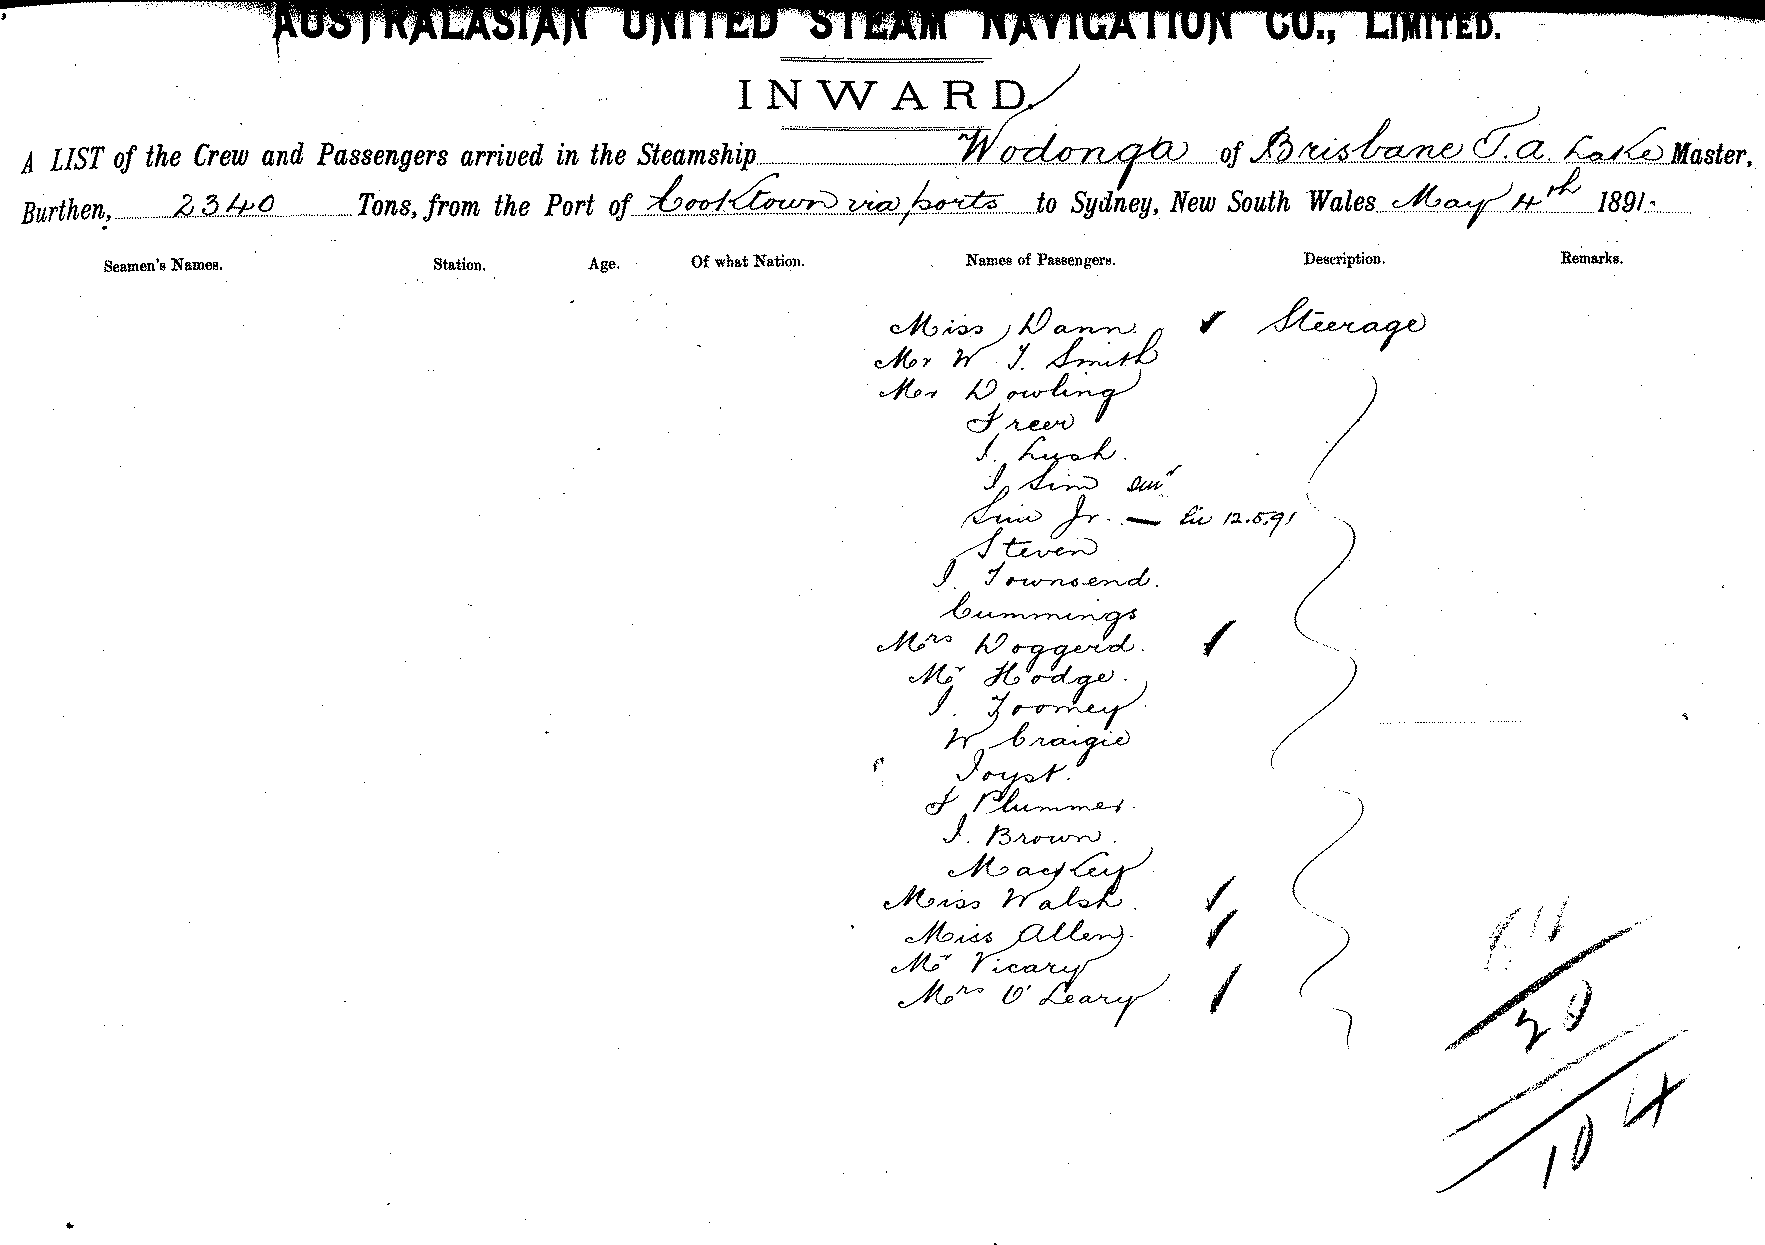 AUSTRALASIAN UNITED STEAM NAVIGATION CO., LIMITED.
INWARD.
A LIST of the Crew and Passengers arrived in the Steamship Wodonga of Brisbane T. A. Lake Master,
Burthen, 2340 Tons, from the Port of Cooktown via ports to Sydney, New South Wales May 4th 1891.
Seamen's Names. Station. Age. Of what Nation. Names of Passengers. Description. Remarks.
Miss Dann ✓ Steerage
Mr W. T. Smith
Mr Dowling
Freer
J. Lush.
J Sim senr
Sim Jr. — 12.5.91
Steven
J. Townsend.
Cummings
Mrs Doggerd. ✓
Mr Hodge.
J. Toomey
W Craigie
Joyst.
F Plummer.
J. Brown.
Mackey
Miss Walsh. ✓
Miss Allen. ✓
Mr Vicary
Mrs O'Leary ✓
20
104